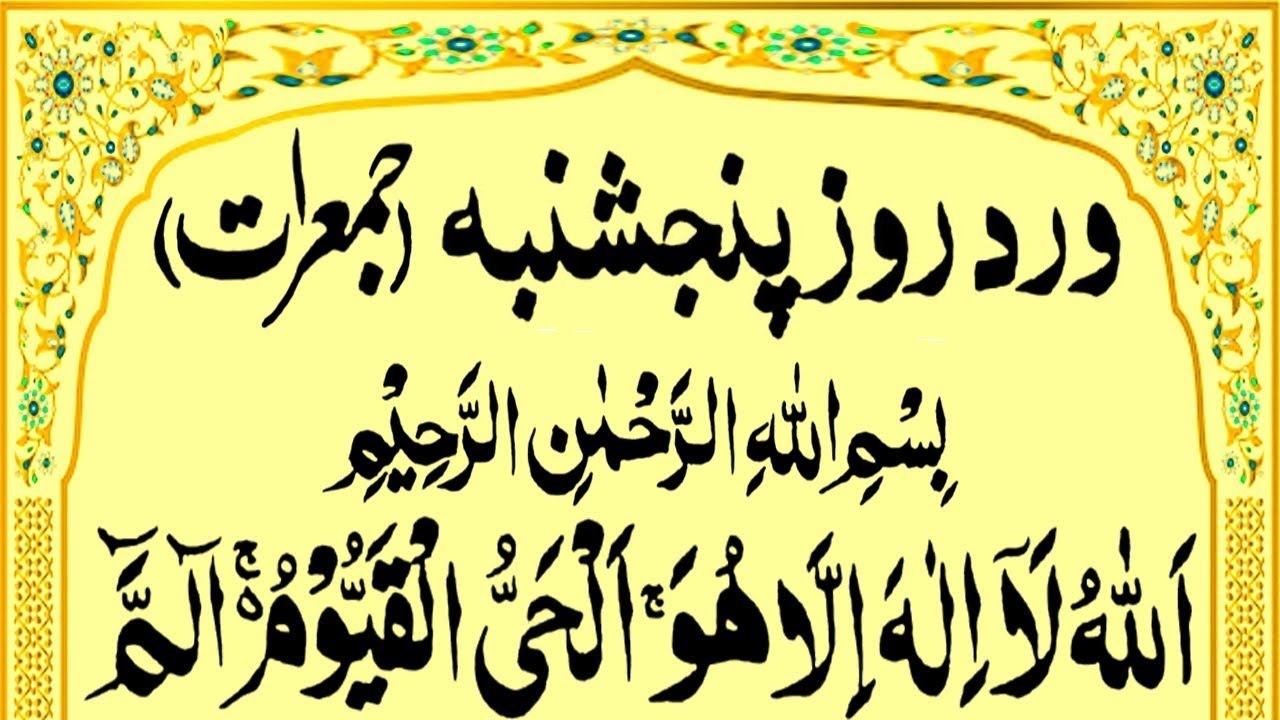 ورد روز پنجشنبه (جمعرات)
بِسْمِ اللّٰهِ الرَّحْمٰنِ الرَّحِيْمِ
اَللّٰهُ لَآ اِلٰهَ اِلَّا هُوَ ۚ اَلْحَیُّ الْقَيُّوْمُ ۚ۬ الٓمّٓ